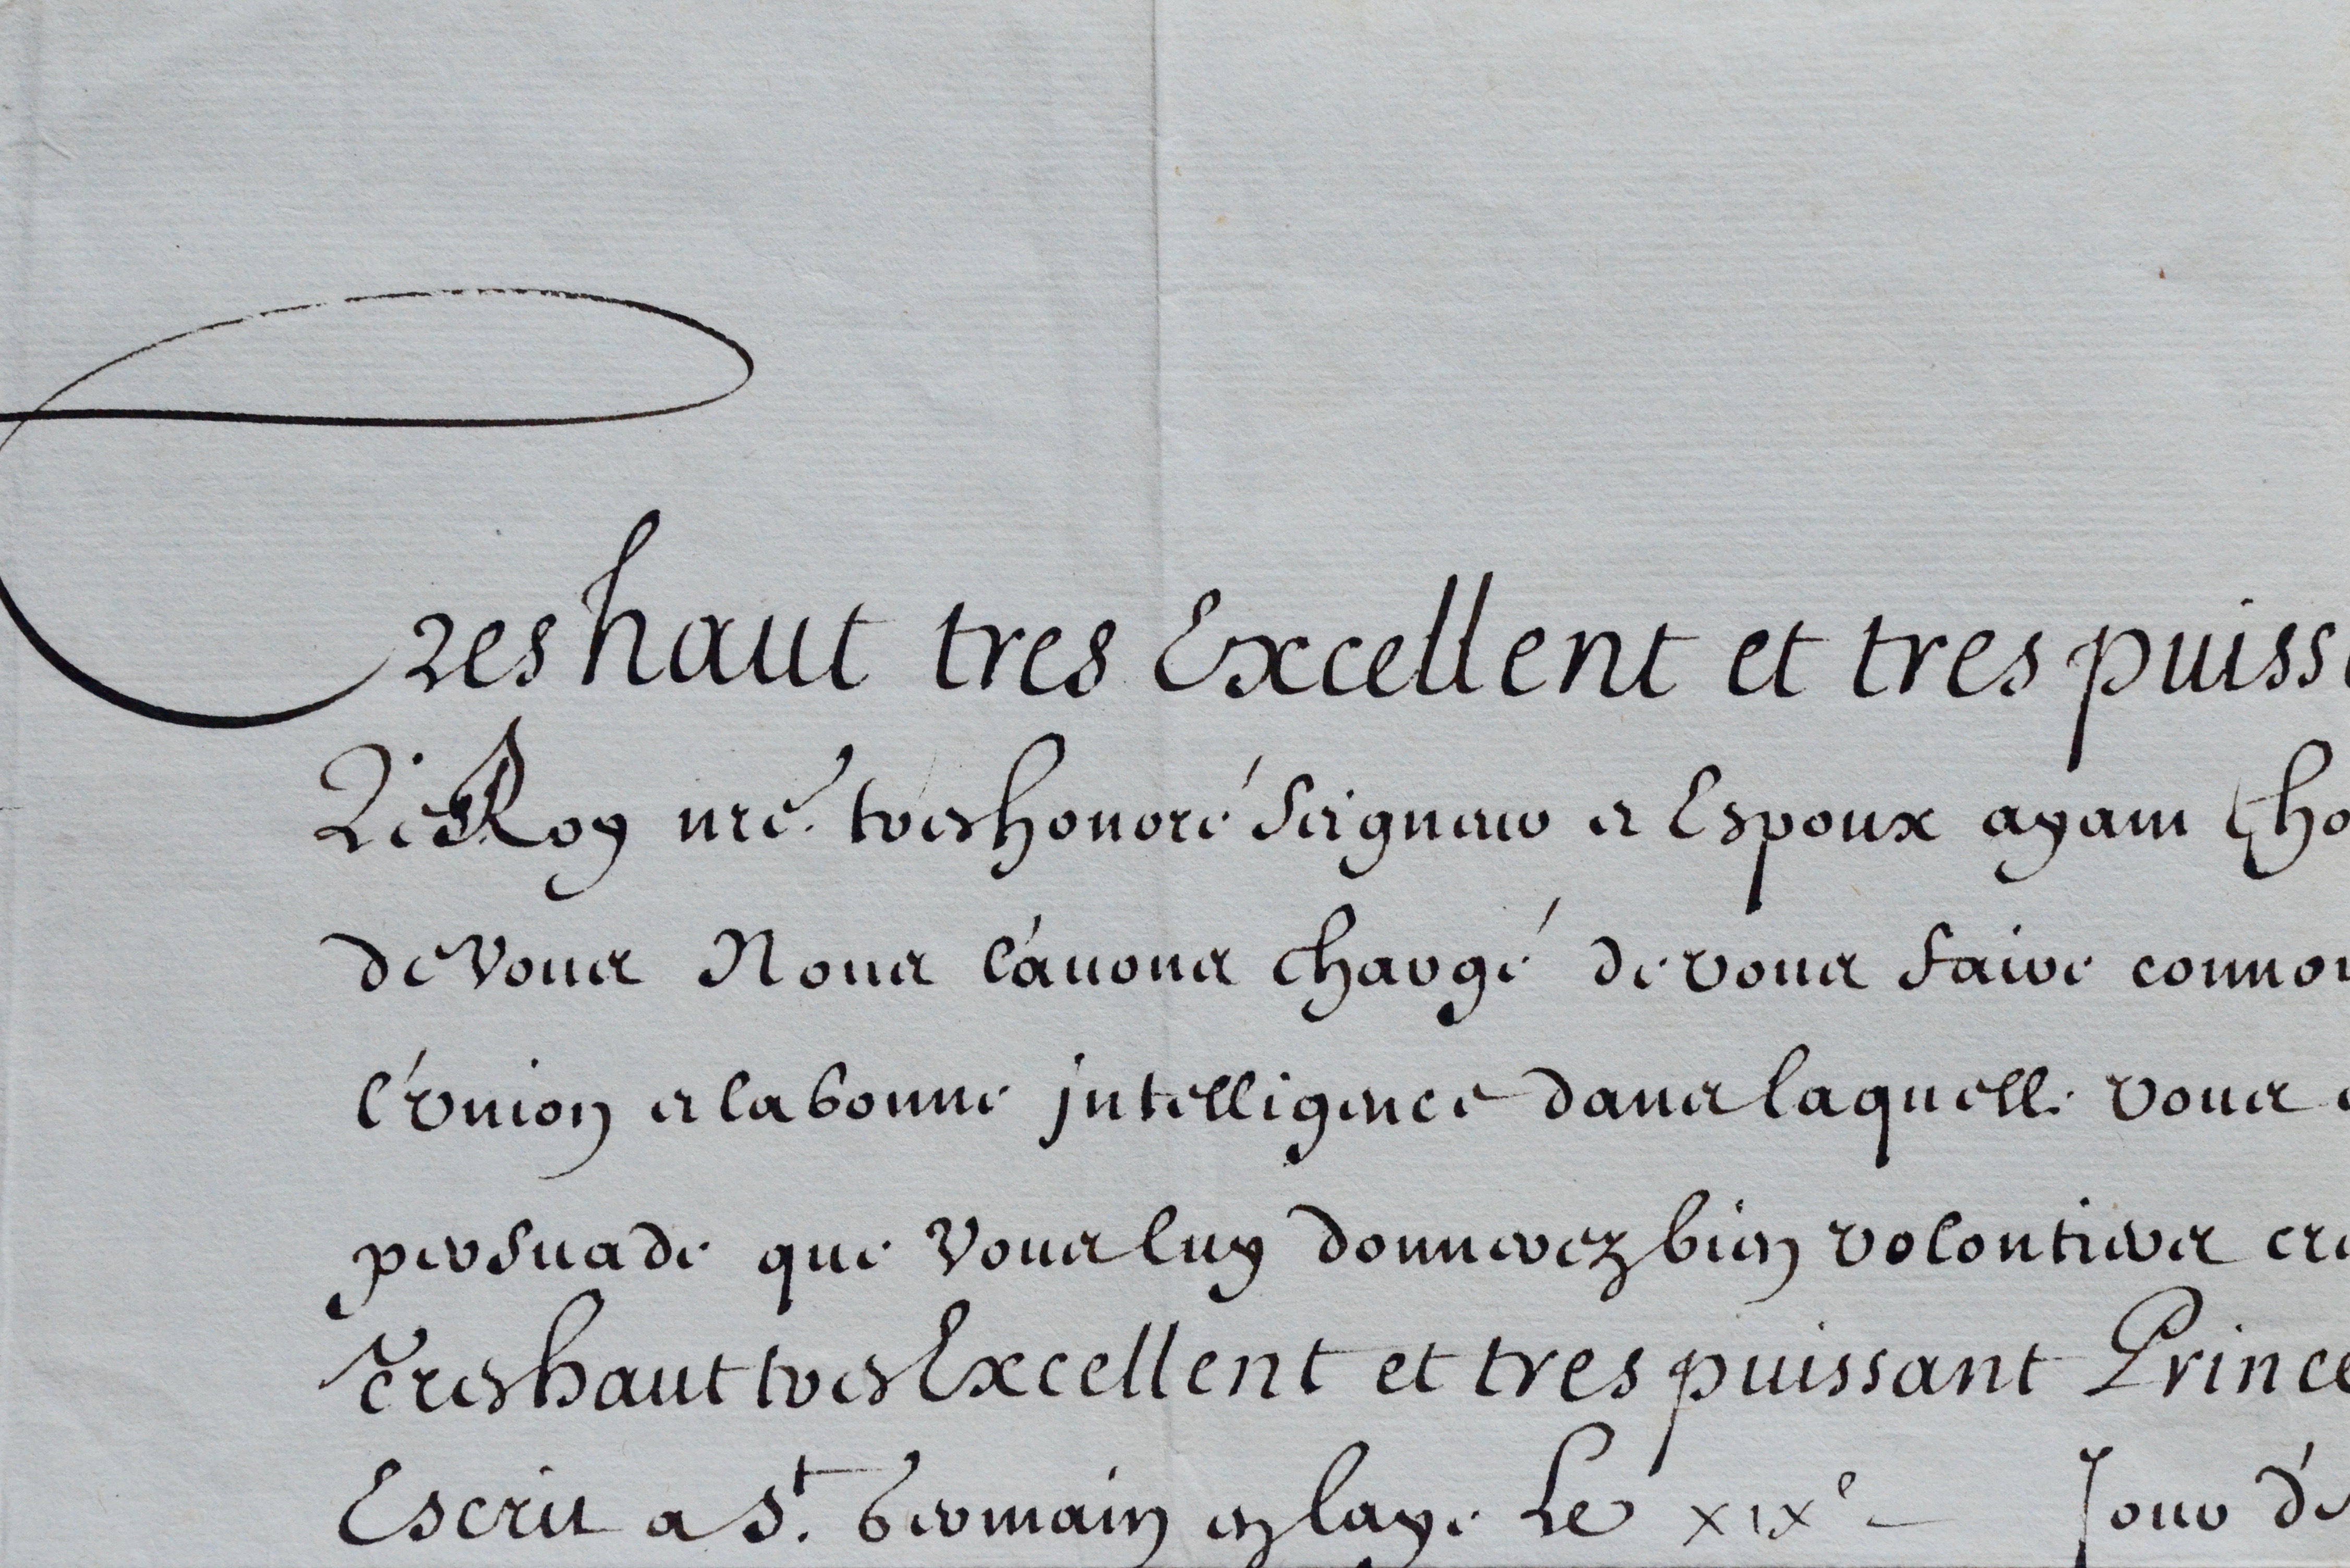 Tres haut tres Excellent et tres puiss
Le Roy nre tres honoré Seigneur et Espoux ayant cho
de vous Nous l'auons chargé de vous faire connoi
l'vnion et la bonne jntelligence dans laquelle vous
persuade que vous luy donnerez bien volontiers cre
Tres haut tres Excellent et tres puissant Prince
Escrit a St. Germain en laye Le XIXe Jour de